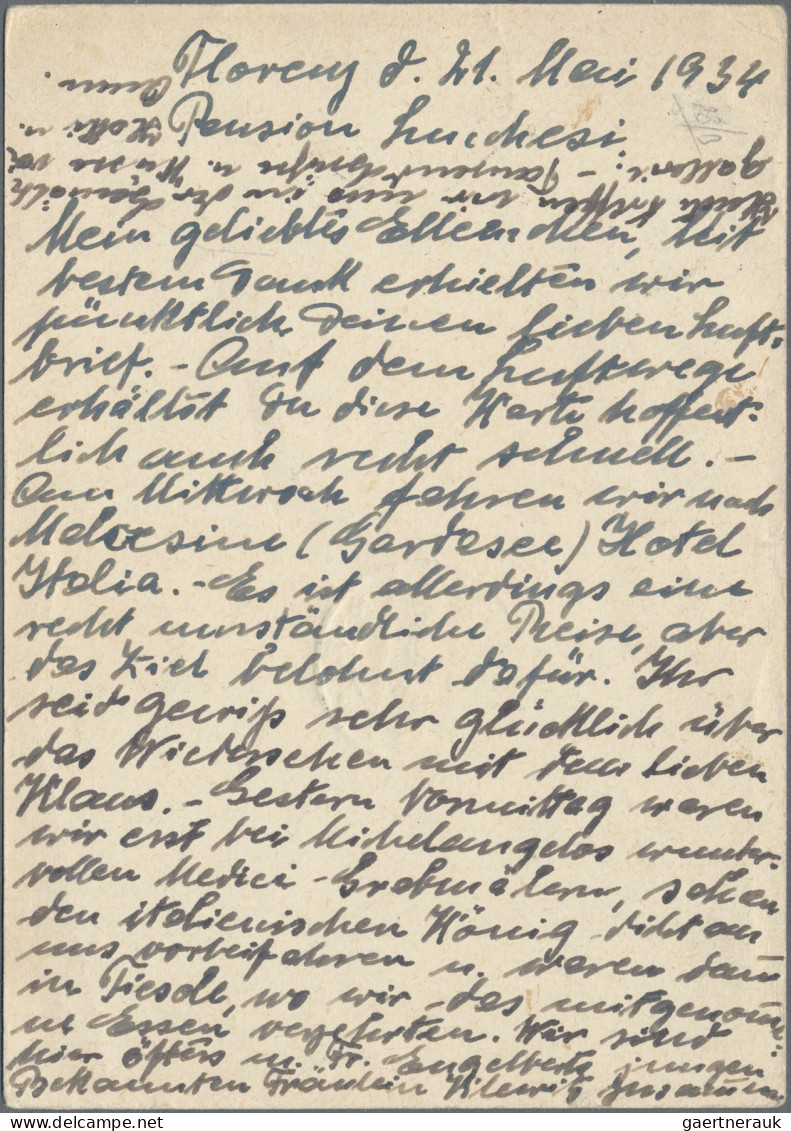 Florenz d. 21. Mai 1934
Pension Luchesi
Mein geliebtes Ellenchen, Mit
bestem Dank erhielten wir
pünktlich Deinen lieben Luft-
brief. - Auf dem Luftwege
erhältst Du diese Karte hoffent-
lich auch recht schnell. -
Am Mittwoch fahren wir nach
Malcesine (Gardasee) Hotel
Italia. - Es ist allerdings eine
recht umständliche Reise, aber
das Ziel belohnt dafür. Ihr
seid gewiß sehr glücklich über
das Wiedersehen mit dem lieben
Klaus. - Gestern Vormittag waren
wir erst bei Michelangelos wunder-
vollen Medici-Grabmälern, sahen
den italienischen König dicht an
uns vorbeifahren u. waren dann
in Fiesole, wo wir das mitgenomme-
ne Essen verzehrten. Wir sind
hier öfters m. Fr. Engelberts jungen
Bekannten Fräulein zusammen
Heute treffen wir uns in der Gemälde
gallerie. - Tausend Grüße u. Küsse von
gaertnerauk